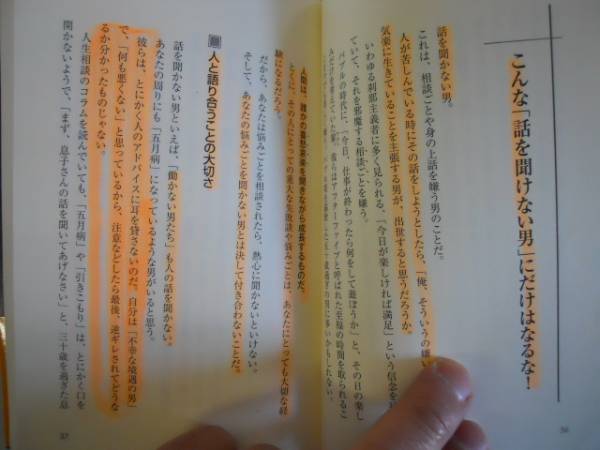 こんな「話を聞けない男」にだけはなるな！
話を聞かない男。
これは、相談ごとや身の上話を嫌う男のことだ。
人が苦しんでいる時にその話をしようとしたら、「俺、そういうの嫌い
気楽に生きていることを主張する男が、出世すると思うだろうか。
いわゆる刹那主義者に多く見られる、「今日が楽しければ満足」という信念を
ていて、それを邪魔する相談ごとを嫌う。
バブルの時代に、「今日、仕事が終わったら何をして遊ぼうか」と、その日の楽し
56
人間は、誰かの喜怒哀楽を聞きながら成長するものだ。
とくに、その人にとっての重大な失敗談や悩みごとは、あなたにとっても大切な経
験になるだろう。
だから、あなたは悩みごとを相談されたら、熱心に聞かないといけない。
そして、あなたの悩みごとを聞かない男とは決して付き合わないことだ。
人と語り合うことの大切さ
話を聞かない男といえば、「働かない男たち」も人の話を聞かない。
あなたの周りにも「五月病」になっているような男がいると思う。
彼らは、とにかく人のアドバイスに耳を貸さないのだ。自分は「不幸な境遇の男」
で、「何も悪くない」と思っているから、注意などしたら最後、逆ギレされてどうな
るか分かったものじゃない。
人生相談のコラムを読んでいても、「五月病」や「引きこもり」は、とにかく口を
開かないようで、「まず、息子さんの話を聞いてあげなさい」と、三十歳を過ぎた息
57